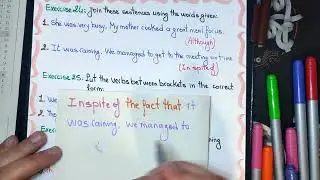 Exercise 24: Join these sentences using the words given:
1. She was very busy. My mother cooked a great meal for us.
(Although)
2. It was raining. We managed to get to the meeting on time.
(Inspite of)
Exercise 25: Put the verbs between brackets in the correct
form:
Inspite of the fact that it
was raining, we managed to